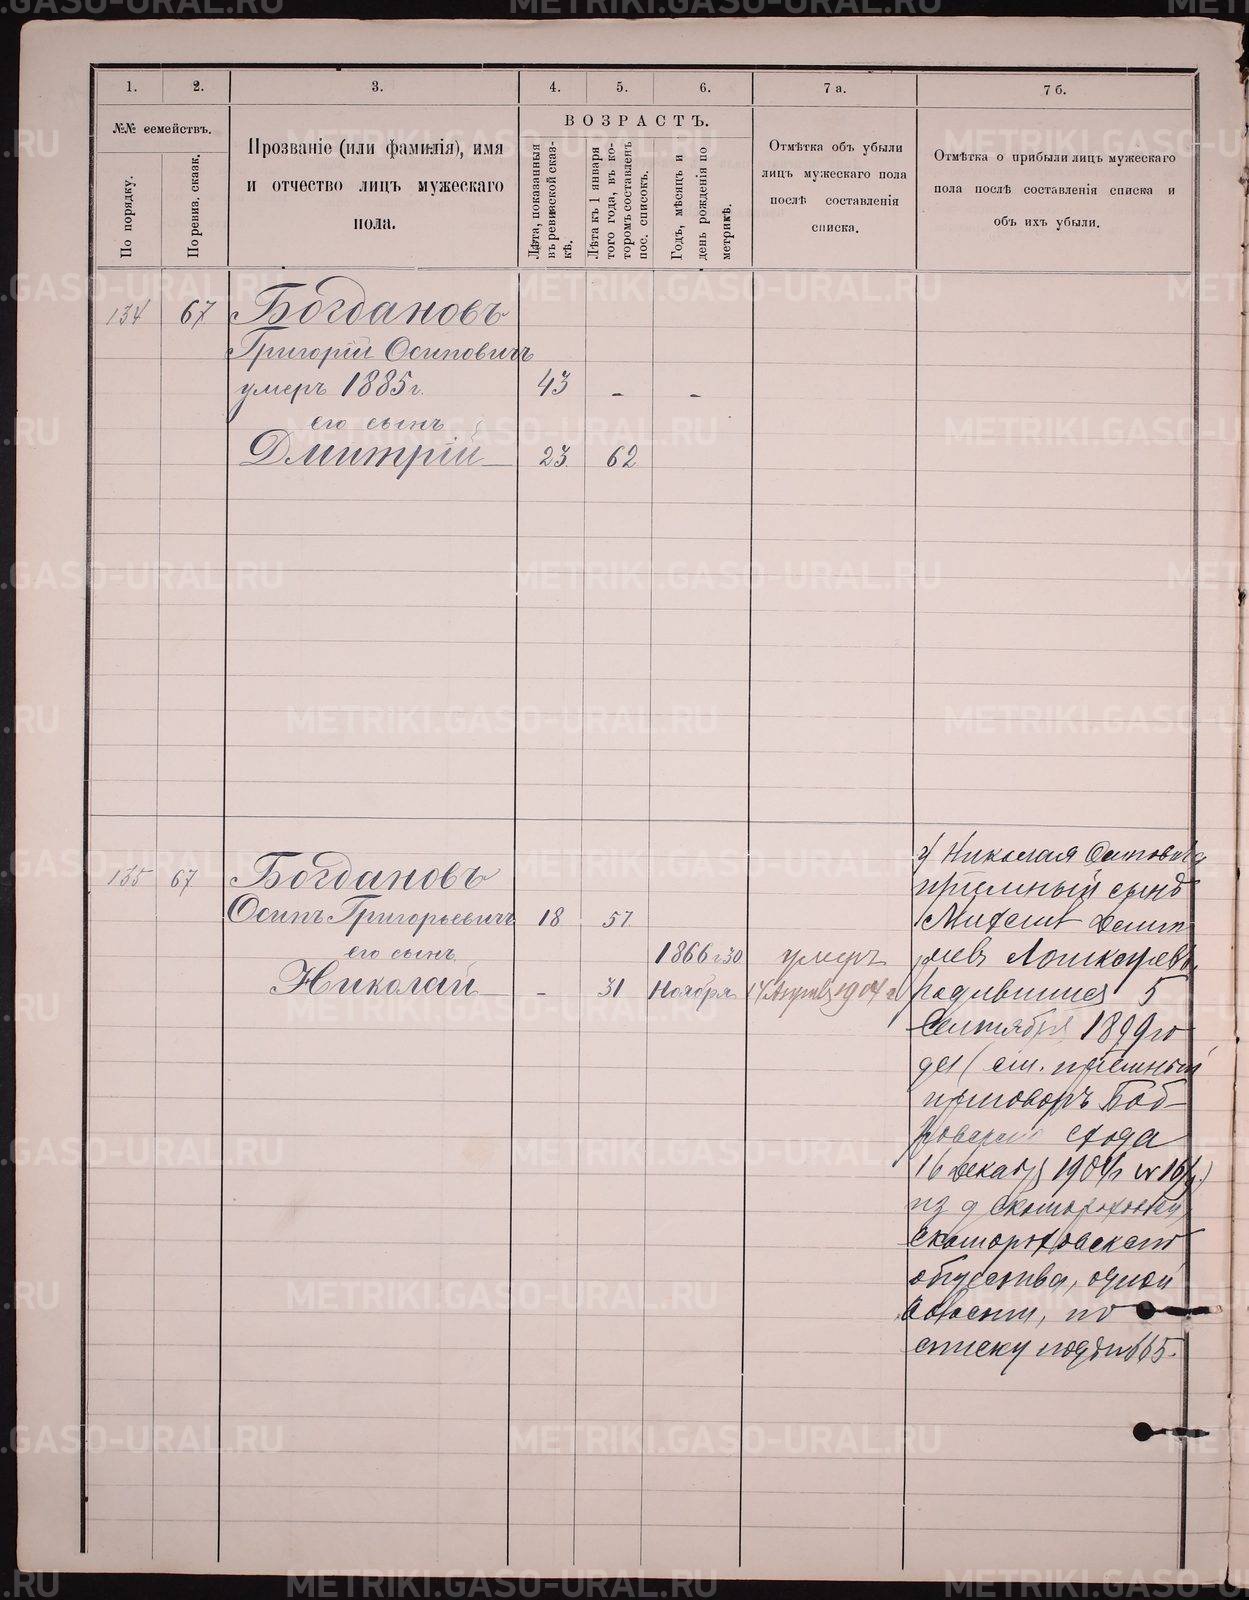 1.
2.
3.
4.
5.
6.
7 а.
7 б.
№№ семействъ.
По порядку.
По ревиз. сказк.
Прозваніе (или фамилія), имя
и отчество лицъ мужескаго
пола.
ВОЗРАСТЪ.
Лѣта, показанныя
въ ревизской сказ-
кѣ.
Лѣта къ 1 января
того года, въ ко-
торомъ составленъ
пос. списокъ.
Годъ, мѣсяцъ и
день рожденія по
метрикѣ.
Отмѣтка объ убыли
лицъ мужескаго пола
послѣ составленія
списка.
Отмѣтка о прибыли лицъ мужескаго
пола послѣ составленія списка и
объ ихъ убыли.
134 67 Богдановъ
Григорій Осиповичъ
умеръ 1885 г. 43 - -
его сынъ
Дмитрій 23 62
135 67 Богдановъ
Осипъ Григорьевичъ 18 57
его сынъ 1866 г 30 умеръ
Николай - 31 Ноября 14 1904 г
Николая Осиповича
пріемный сынъ
родившійся 5
Сентября 1899 го
да (см. пріемный
приговоръ Боб-
схода
16 декабря 190
из д
общества, одной
волости, по
списку подъ № 65.
METRIKI.GASO-URAL.RU